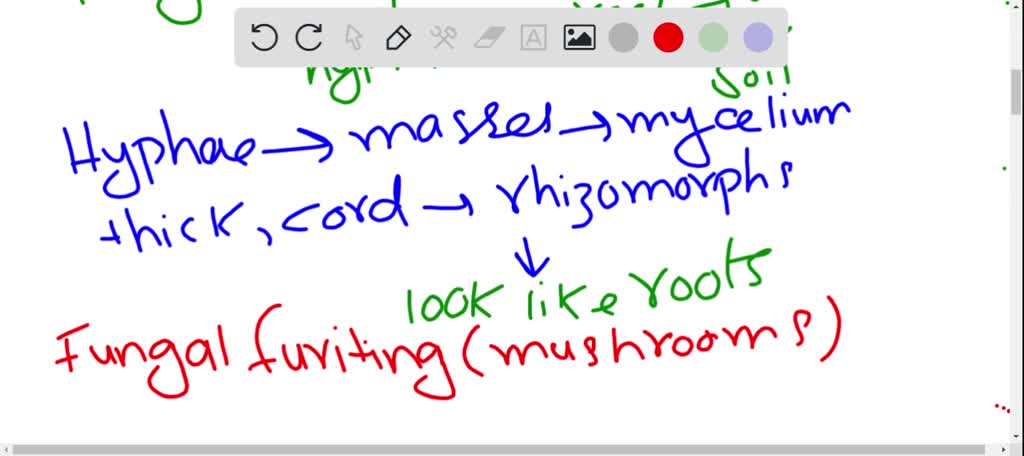 soil
Hyphae → masses → mycelium
thick, cord → rhizomorphs
↓
look like roots
Fungal furiting (mushrooms)